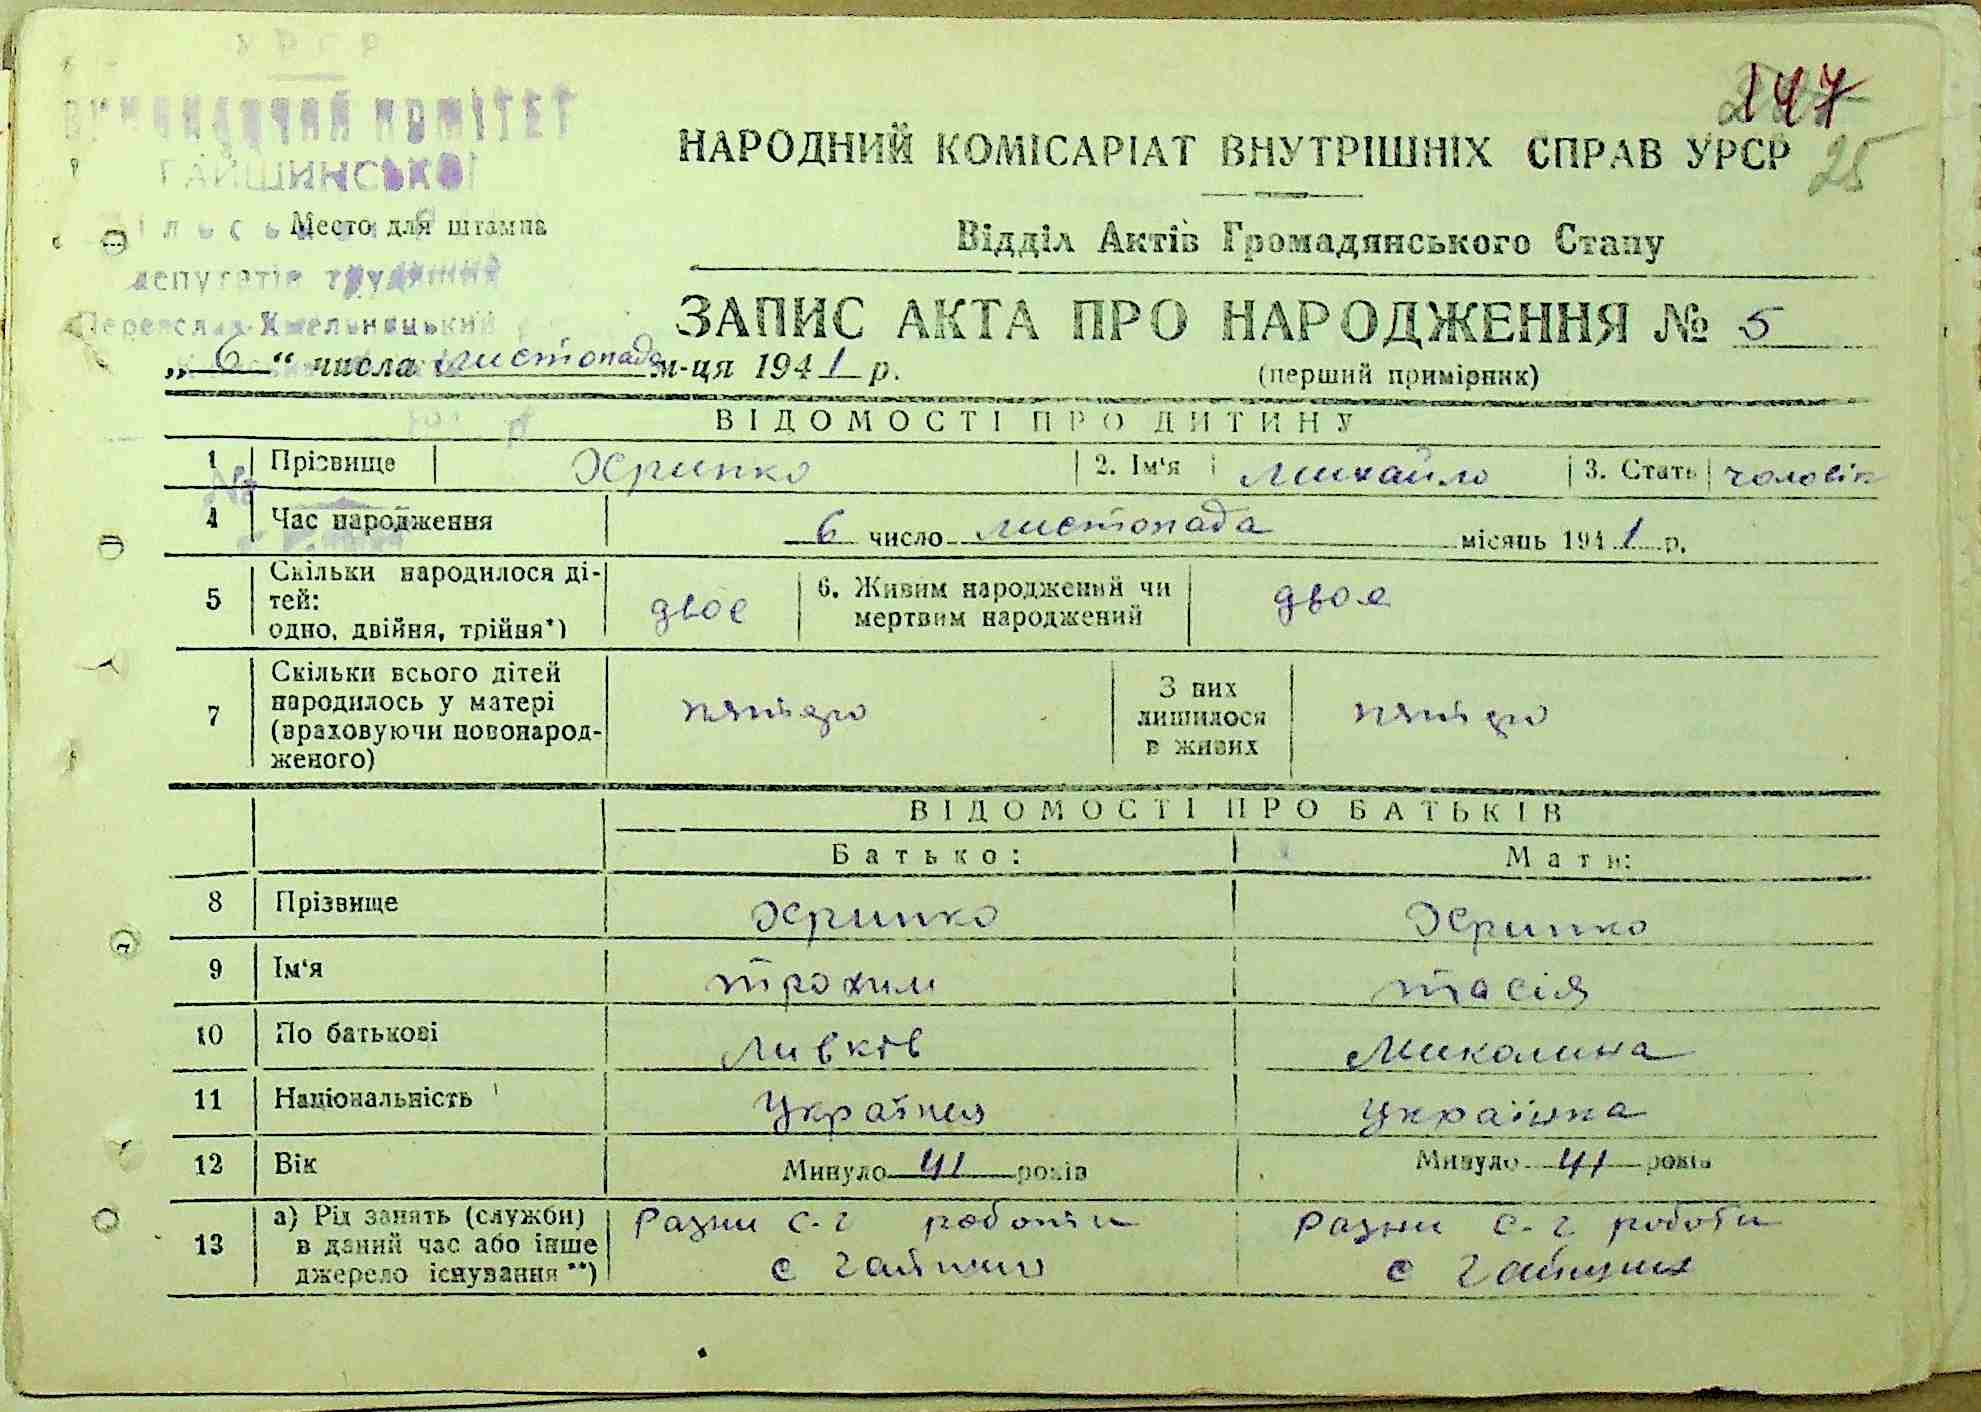 УРСР
ВИКОНАВЧИЙ КОМІТЕТ
ГАЙШИНСЬКОЇ
Місто для штампа
депутатів трудящих
Переяслав-Хмельницький
147
25
НАРОДНИЙ КОМІСАРІАТ ВНУТРІШНІХ СПРАВ УРСР
Відділ Актів Громадянського Стану
ЗАПИС АКТА ПРО НАРОДЖЕННЯ № 5
„ 6 “ числа листопада м-ця 1941 р.
(перший примірник)
ВІДОМОСТІ ПРО ДИТИНУ
1 Прізвище Хрипко 2. Ім‘я Михайло 3. Стать чоловік
№
4 Час народження 6 число листопада місяць 1941 р.
5 Скільки народилося ді-
тей:
одно, двійня, трійня*) двоє 6. Живим народжений чи
мертвим народжений двоє
7 Скільки всього дітей
народилось у матері
(враховуючи новонарод-
женого) пятеро З них
лишилося
в живих пятеро
ВІДОМОСТІ ПРО БАТЬКІВ
Батько: Мати:
8 Прізвище Хрипко Хрипко
9 Ім‘я трохим тасія
10 По батькові Ливков Миколина
11 Національність Українец Українка
12 Вік Минуло 41 років Минуло 41 років
13 а) Рід занять (служби)
в даний час або інше
джерело існування**) Разни с-г роботи Разни с-г роботи
с Гайшин с Гайшин